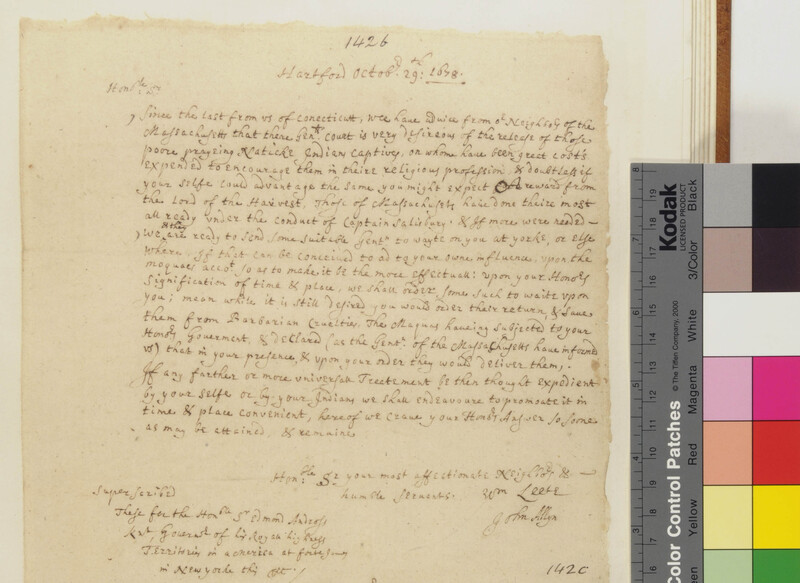 1426
Hartford Octobr. 29th: 1678.
Honble Sr
Since the last from vs of Conecticutt, wee have advice from or Neighbors of the
Massachusetts that there Genll Court is very desireous of the release of those
poore prayeing Naticke Indian Captives, on whom have been great costs
expended to encourage them in theire religious profession, & doubtless if
your selfe could advantage the same you might expect a reward from
the Lord of the Harvest. Those of Massachusets have done theire most
all ready vnder the conduct of Captain Salisbury. & if more were needed
We are ready to send some suitable Gentn to wayte on you at yorke, or else
where. If that can be conceived to ad to your owne influence, vpon the
moquaes accot. so as to make it be the more effectuall: vpon your Honors
Signification of time & place, we shall order some such to waite vpon
you; mean while it is still desired you would order their return, & save
them from Barbarian Cruelties, The Maquas haveing subjected to your
Honors Goverment, & declared (as the Gentn of the Massachusetts have informd
vs) that in your presence, & vpon your order they would deliver them,
If any farther or more universall Treatement be then thought expedient
by your selfe or by your Indians we shall endeavoure to promoate it in
time & place convenient, hereof we crave your Honrs Answer so soone
as may be attained, & remaine
Honble Sr your most affectionate Neighbrs &
humble servants. Wm Leete
John Allyn
Superscribed
These for the Honble Sr Edmond Andross
Knt, Governr of his Royall highness
Territories in america at
in New yorke this
142c
Kodak
LICENSED PRODUCT
Black
3/Color
White
© The Tiffen Company, 2000
Magenta
Color Control Patches
Red
Yellow
Green
8
7
6
5
4
3
19
18
17
16
15
14
13
12
11
10
9
8
7